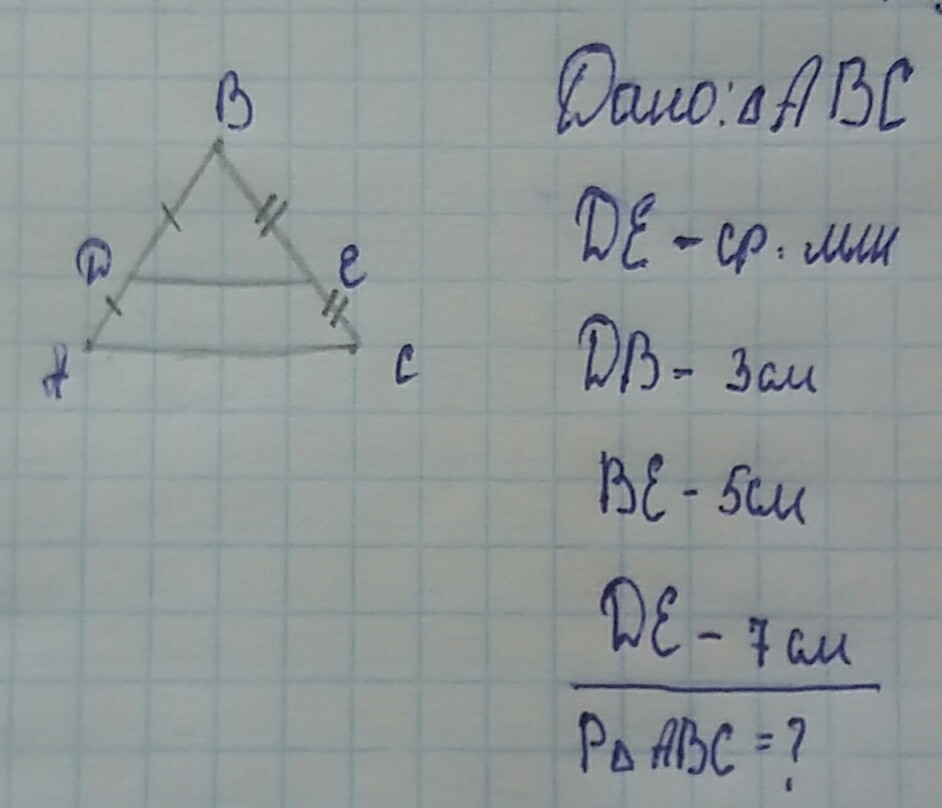 B
D
E
A
C
Дано: △ABC
DE - ср. лин
DB - 3см
BE - 5см
DE - 7см
P△ABC = ?